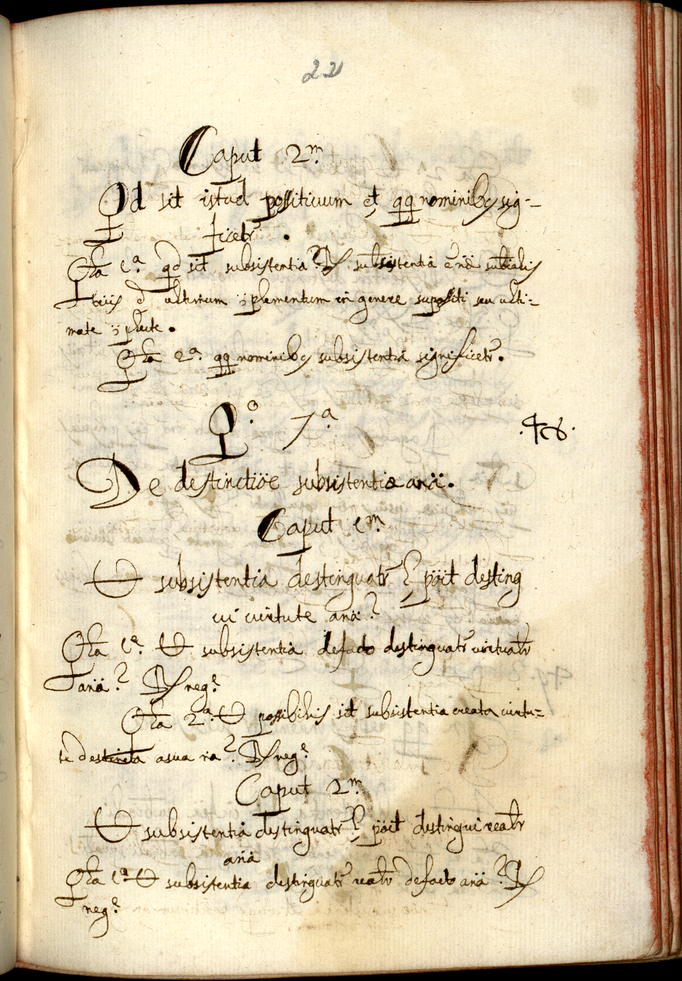 22
Caput 2m
Qd sit istud possitivum et qq nominibq sig-
ficetr.
Qta 1a. qd sit subsistentia? R subsistentia e
d ultimum complementum in genere suppositi seu ulti-
mate
Qta 2a. qq nominibq subsistentia significetr.
Qo. 7a
De destinctioe subsistentiæ ana.
Caput 1m
Ut subsistentia destinguatr & poit desting
ui virtute ana?
Qta 1a. Ut subsistentia defacto destinguatr virtuatr
ana? R negr
Qta 2a. Ut possibilis sit subsistentia creata virtu-
te destincta asua na? R negr
Caput 2m
Ut subsistentia destinguatr & poit destingui reatr
ana
Qta 1a Ut subsistentia destinguatr reatr defacto ana? R
negr